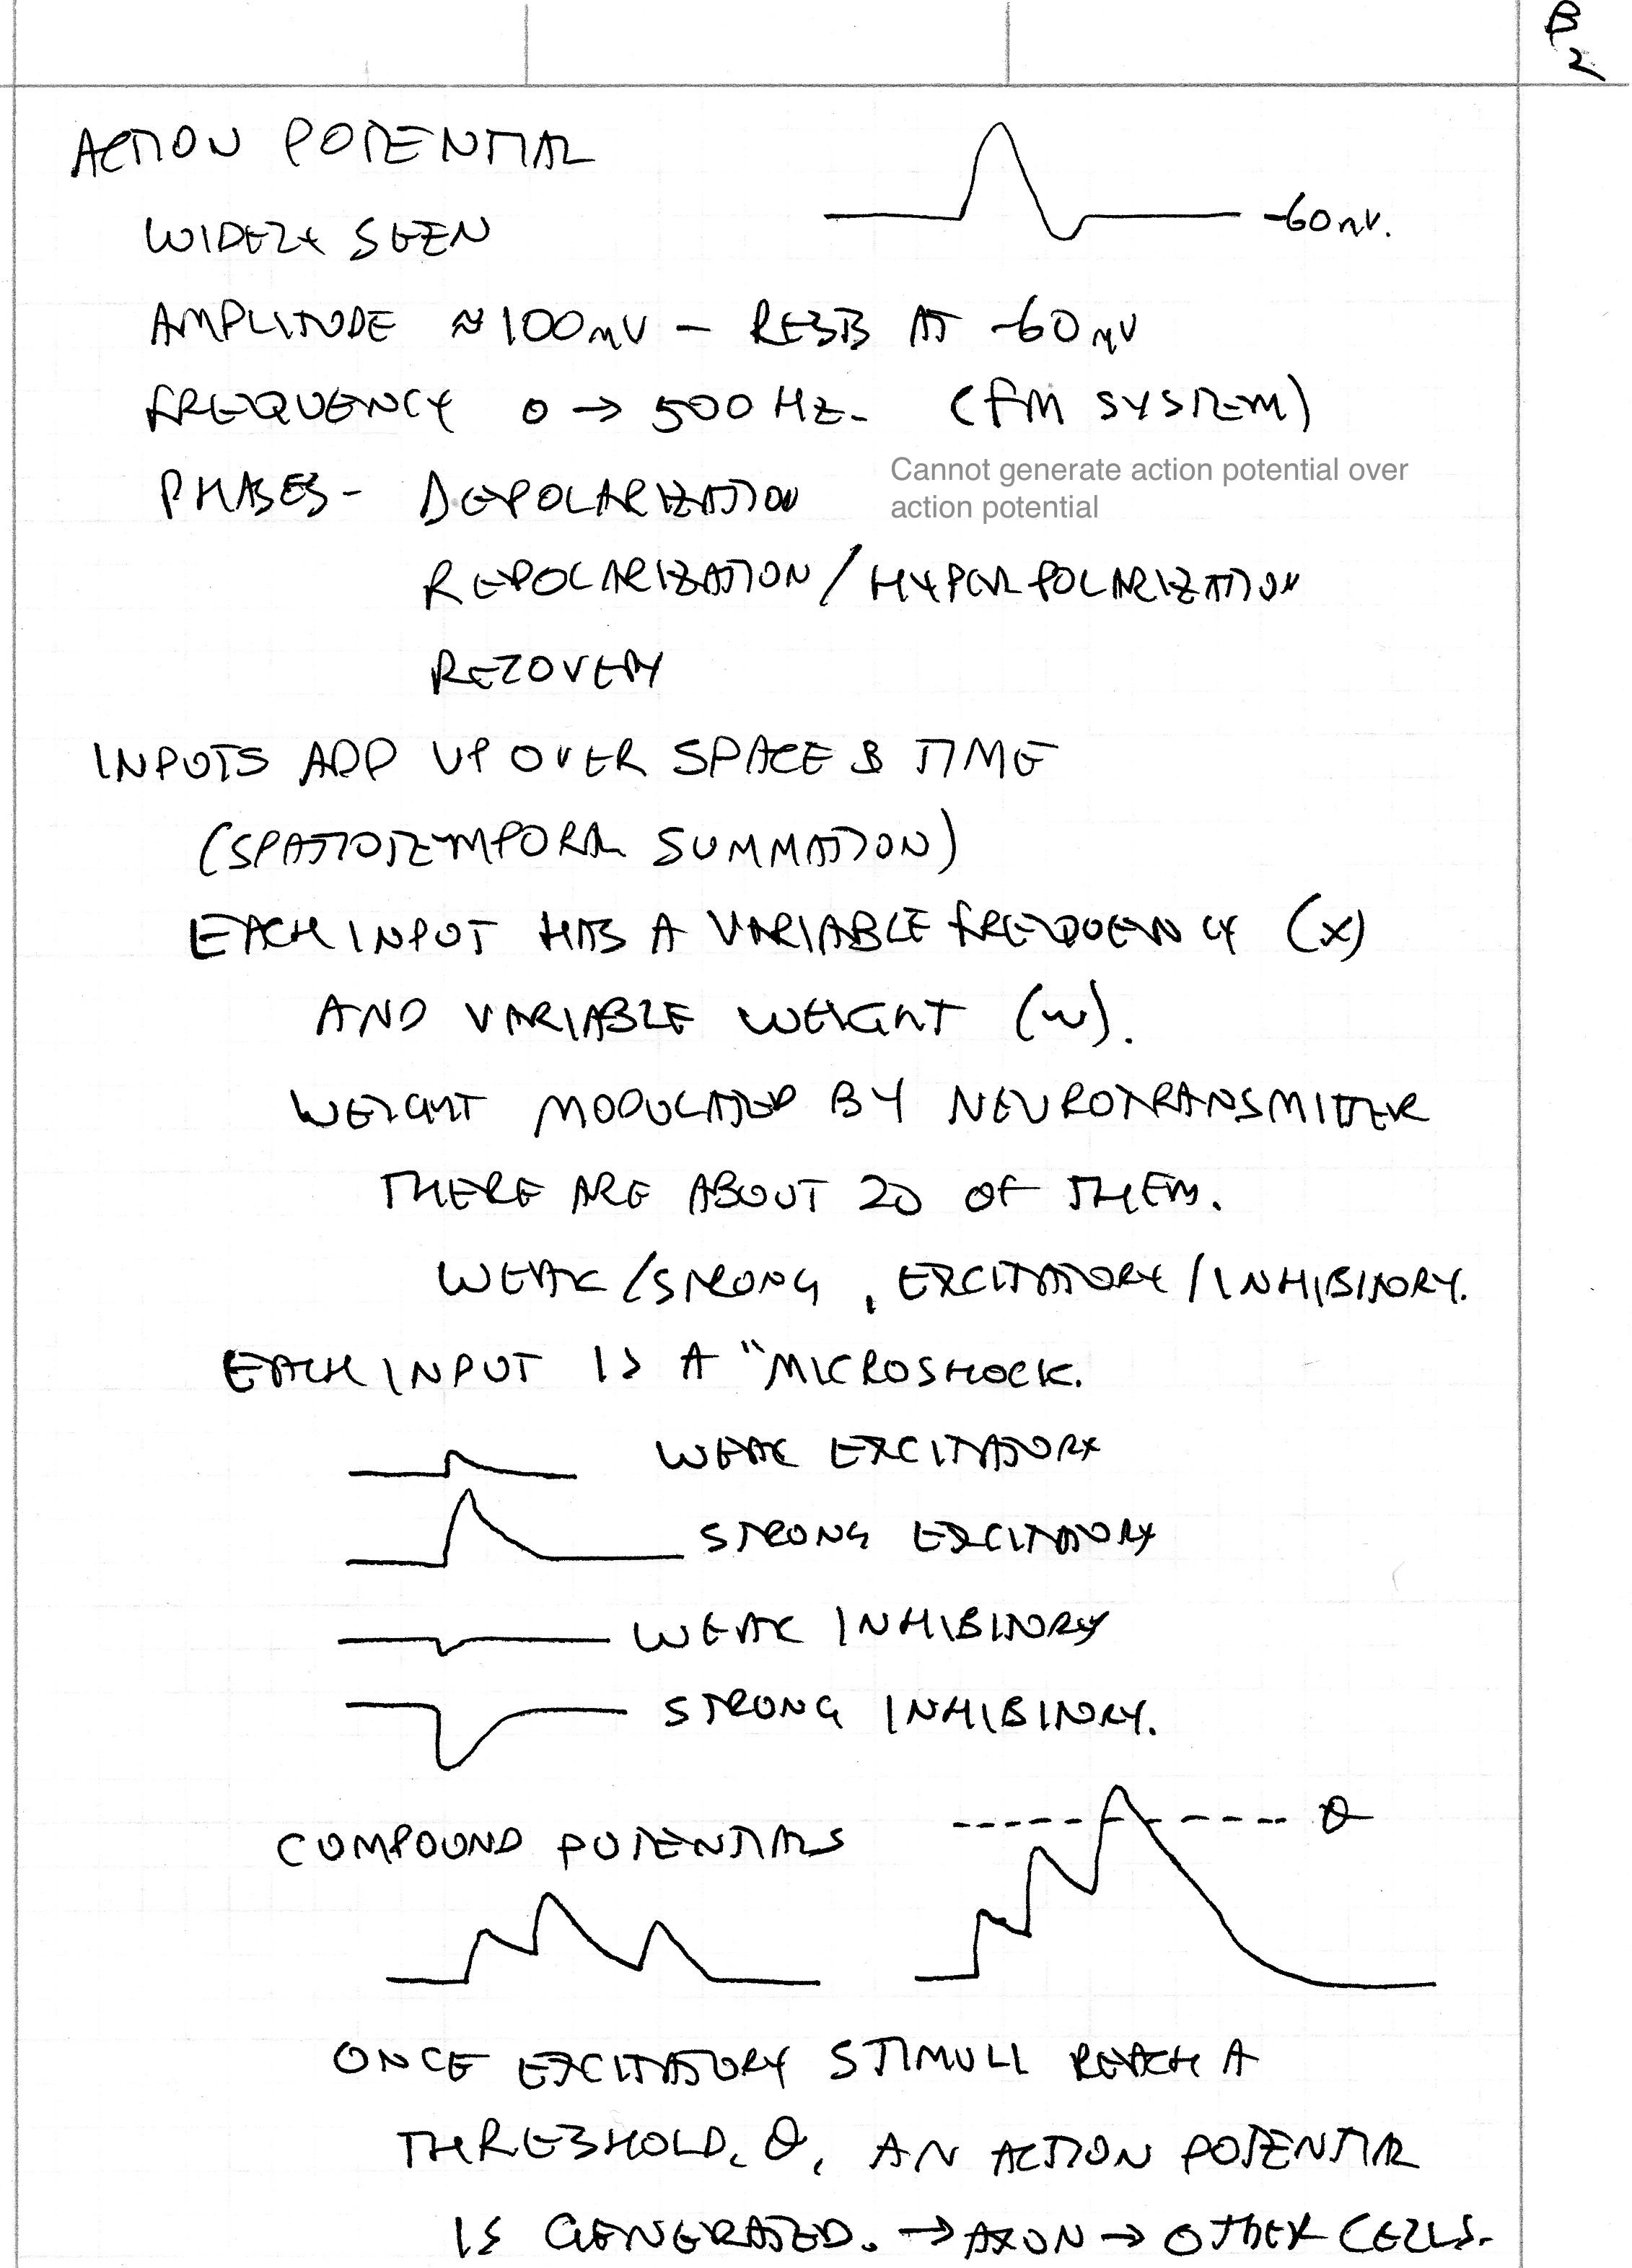 B
2
ACTION POTENTIAL
WIDELY SEEN
-60mV.
AMPLITUDE ≈100mV - RESTS AT -60mV
FREQUENCY 0 → 500 Hz. (FM SYSTEM)
PHASES - DEPOLARIZATION
Cannot generate action potential over
action potential
REPOLARIZATION/HYPERPOLARIZATION
RECOVERY
INPUTS ADD UP OVER SPACE & TIME
(SPATIOTEMPORAL SUMMATION)
EACH INPUT HAS A VARIABLE FREQUENCY (x)
AND VARIABLE WEIGHT (w).
WEIGHT MODULATED BY NEUROTRANSMITTER
THERE ARE ABOUT 20 OF THEM.
WEAK/STRONG, EXCITATORY/INHIBITORY.
EACH INPUT IS A "MICROSHOCK.
WEAK EXCITATORY
STRONG EXCITATORY
WEAK INHIBITORY
STRONG INHIBITORY.
θ
COMPOUND POTENTIALS
ONCE EXCITATORY STIMULI REACH A
THRESHOLD, θ, AN ACTION POTENTIAL
IS GENERATED. → AXON → OTHER CELLS.